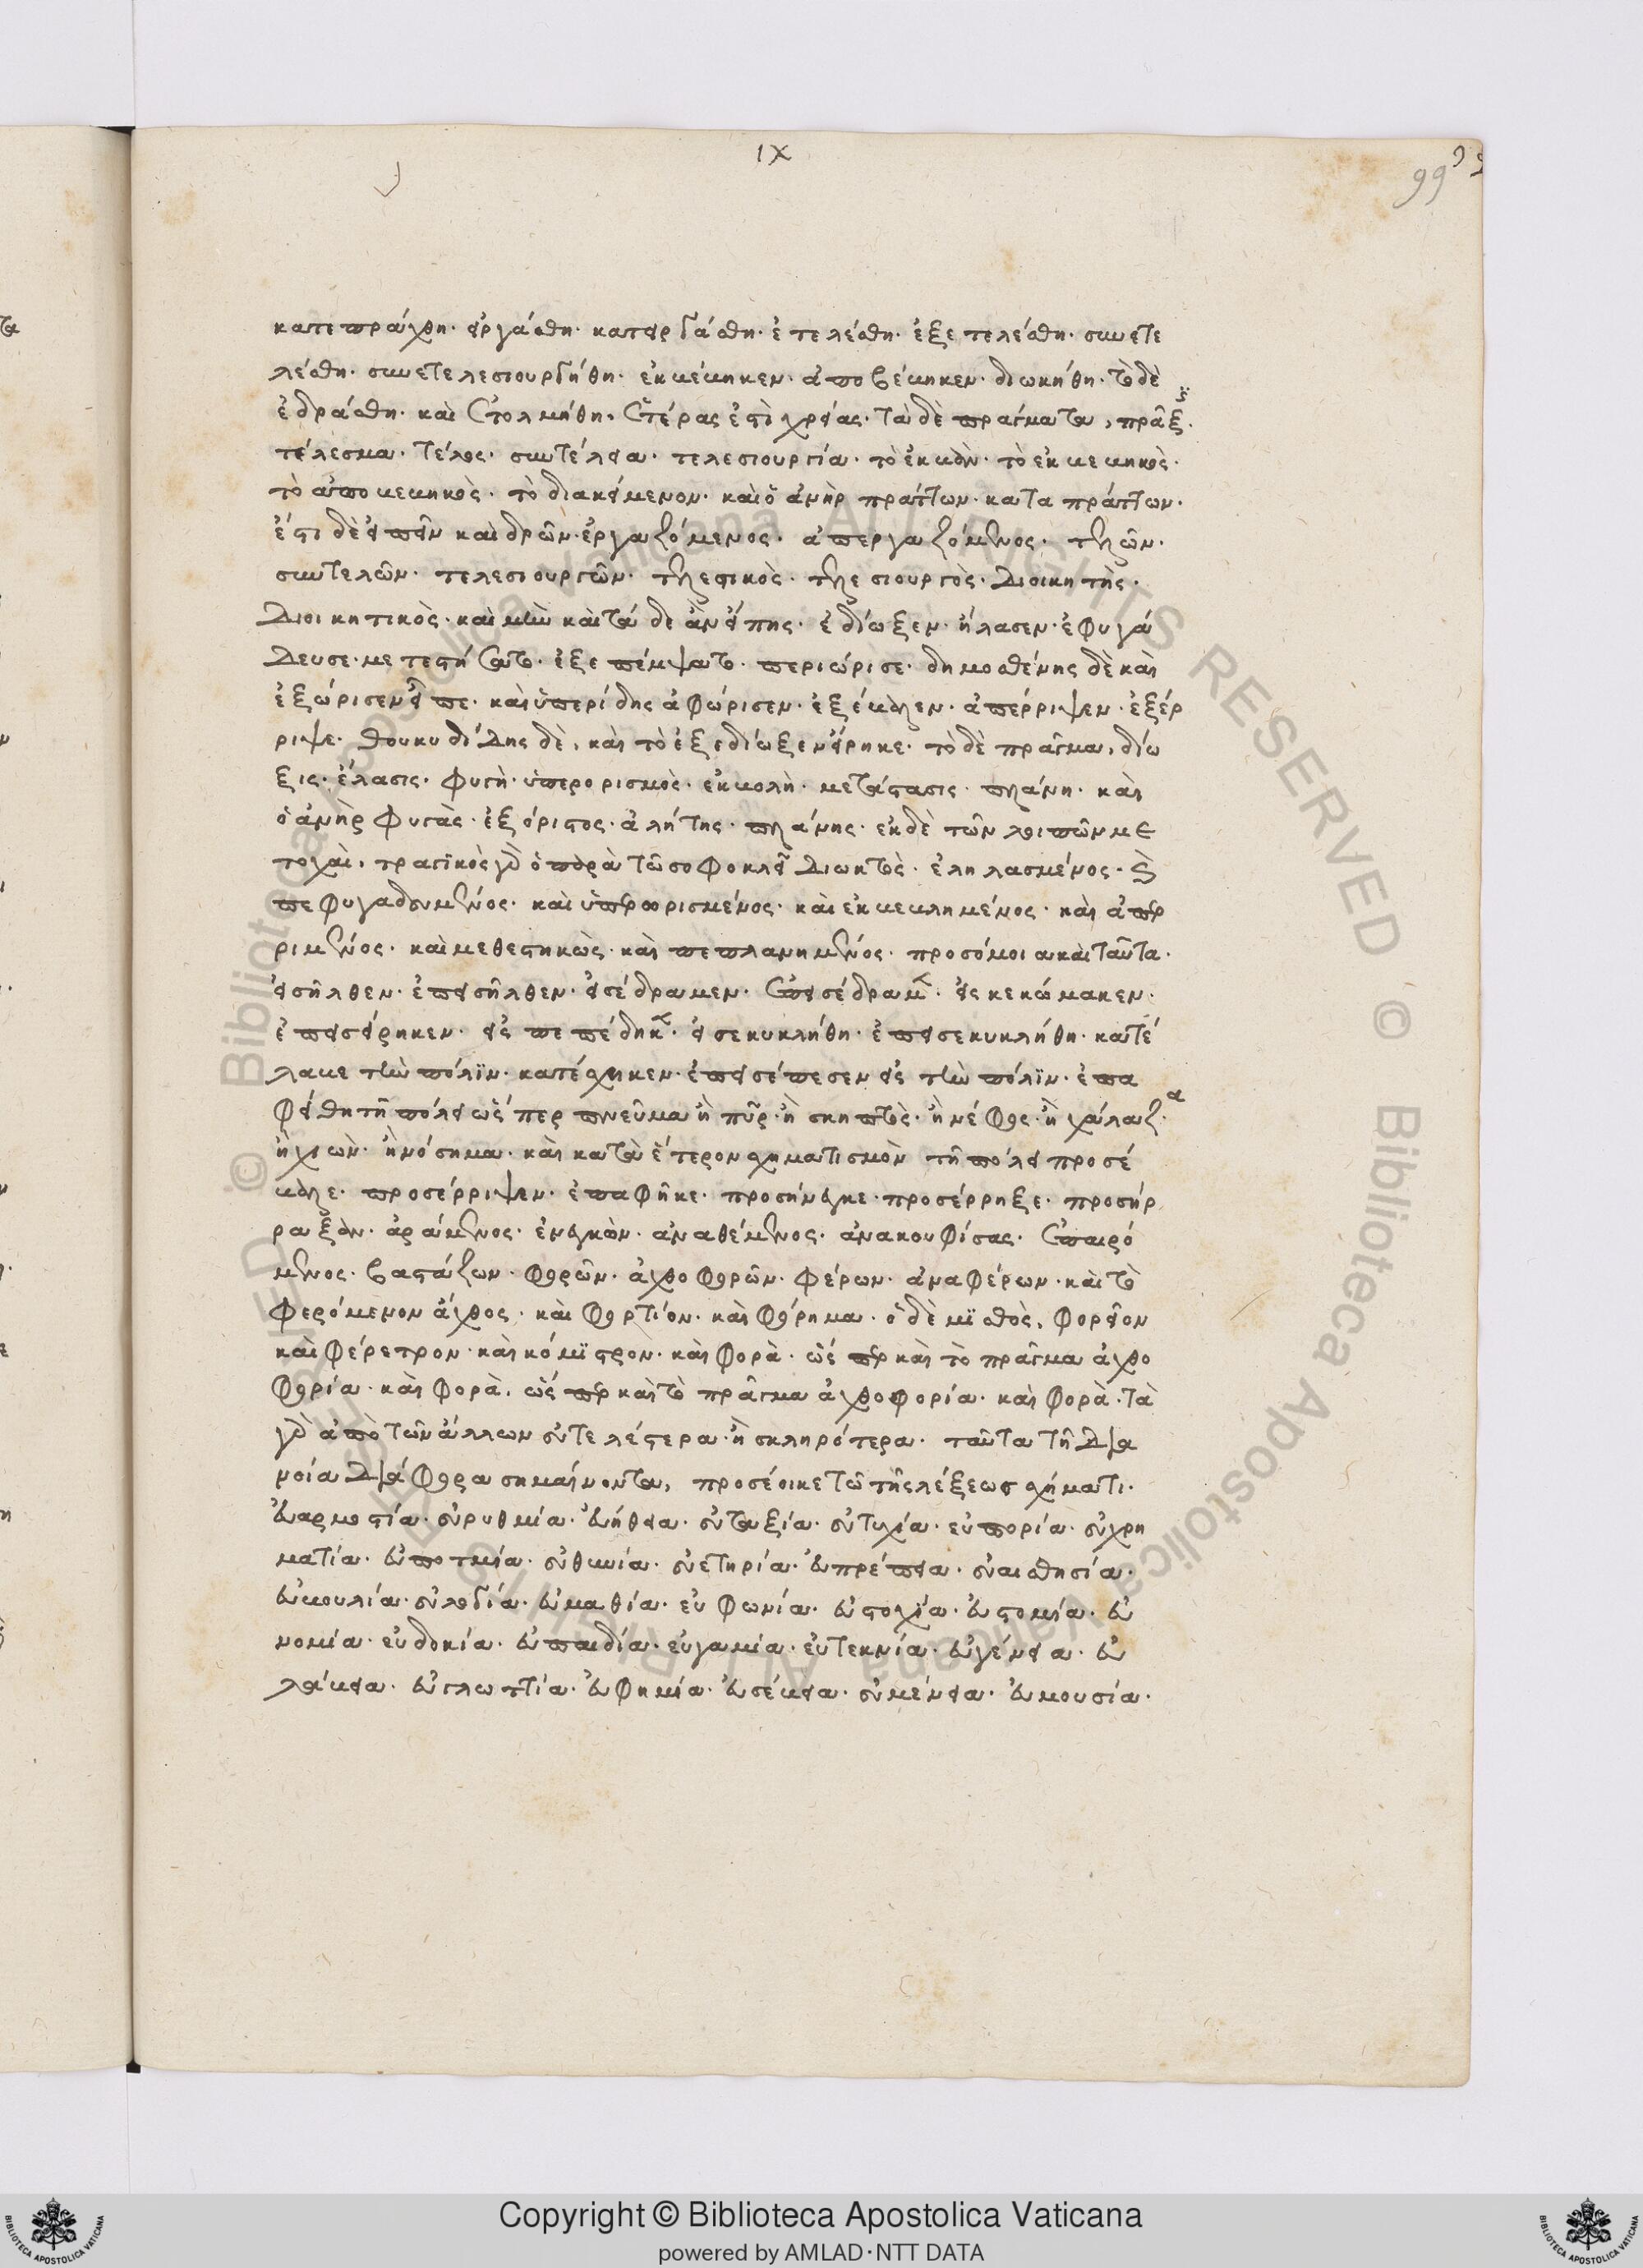 ιχ
99
κατεπράχθη· εἰργάσθη· κατειργάσθη· ἐτελέσθη· ἐξετελέσθη· συνετε
λέσθη· συνετελεσιουργήθη· ἐκβέβηκεν· ἀποβέβηκεν· διωκήθη· τὸ δὲ
ἐδράσθη· καὶ ἐτολμήθη· ἑτέρας ἐστὶ χρείας· τὰ δὲ πράγματα, πρᾶξ
τέλεσμα· τέλος· συντέλεια· τελεσιουργία· τὸ ἐκβὰν· τὸ ἐκβεβηκὸς·
τὸ ἀποβεβηκὸς· τὸ διακείμενον· καὶ ὁ ἀνὴρ πράττων· καταπράττων·
ἔστι δὲ εἰπεῖν καὶ δρῶν· ἐργαζόμενος· ἀπεργαζόμενος· τελῶν·
συντελῶν· τελεσιουργῶν· τελεστικὸς· τελεσιουργὸς· Διοικητὴς·
Διοικητικὸς· καὶ μὴν καὶ τάδε ἂν εἴπης· ἐδίωξεν· ἤλασεν· ἐφυγά
Δευσε· μετεστήσατο· ἐξεπέμψατο· περιώρισε· δημοσθένης δὲ καὶ
ἐξώρισεν εἶπε· καὶ ὑπερίδης ἀφώρισεν· ἐξέβαλεν· ἀπέρριψεν· ἐξέρ
ριψε· Θουκυδίδης δὲ, καὶ τὸ ἐξεδίωξεν εἴρηκε· τὸ δὲ πρᾶγμα, δίω
ξις· ἔλασις· φυγὴ· ὑπερορισμὸς· ἐκβολὴ· μετάστασις· πλάνη· καὶ
ὁ ἀνὴρ φυγὰς· ἐξόριστος· ἀλήτης· πλάνης· ἐκ δὲ τῶν λοιπῶν με
τοχαὶ, τραγϊκὸς γὰρ ὁ παρὰ τῶ σοφοκλεῖ Διωκτὸς· ἐληλασμένος· καὶ
πεφυγαδευμένος· καὶ ὑπερωρισμένος· καὶ ἐκβεβλημένος· καὶ ἀπερ
ριμένος· καὶ μεθεστηκὼς· καὶ πεπλανημένος· προσόμοια καὶ ταῦτα·
εἰσῆλθεν· ἐπεισῆλθεν· εἰσέδραμεν· ἐπεισέδραμεν· εἰσκεκώμακεν·
ἐπεισείρηκεν· εἰσπεπέδηκεν· εἰσεκυκλήθη· ἐπεισεκυκλήθη· κατέ
λαβε τὴν πόλϊν· κατέσχηκεν· ἐπεισέπεσεν εἰς τὴν πόλϊν· ἐπα
φείθη τῆ πόλει ὥσπερ πνεῦμα ἢ πῦρ· ἢ σκηπτὸς· ἢ νέφος· ἢ χάλαζα
ἢ χιὼν· ἢ νόσημα· καὶ κατὰ ἕτερον σχηματισμὸν τῆ πόλει προσέ
βαλε· προσέρριψεν· ἐπαφῆκε· προσήνεγκε· προσέρρηξε· προσήρ
ραξὰν· ἀράμενος· ἐνεγκὼν· ἀναθέμενος· ἀνακουφίσας· ἐπαιρό
μενος· βαστάζων· φορῶν· ἀχθοφορῶν· φέρων· ἀναφέρων· καὶ τὸ
φερόμενον ἄχθος· καὶ φορτίον· καὶ φόρημα· ὁ δὲ μϊσθὸς, φορεῖον
καὶ φέρετρον· καὶ κόμϊστρον· καὶ φορὰ· ὥσπερ καὶ τὸ πρᾶγμα ἀχθο
φορία· καὶ φορὰ, ὥσπερ καὶ τὸ πρᾶγμα ἀχθοφορία· καὶ φορὰ· τὰ
γὰρ ἀπὸ τῶν ἄλλων εὐτελέστερα· ἢ σκληρότερα· ταῦτα τῆ Δια
νοία Διάφορα σημαίνοντα, προσέοικε τῶ τῆς λέξεως σχήματι·
εὐαρμοστία· εὐρυθμία· εὐήθεια· εὐταξία· εὐτυχία· εὐπορία· εὐχρη
ματία· εὐποτμία· εὐθυνία· εὐετηρία· εὐπρέπεια· εὐαισθησία·
εὐβουλία· εὐλογία· εὐμαθία· εὐφωνία· εὐστοχϊα· εὐστομία· εὐ
νομία· εὐδοκία· εὐπαιδία· εὐγαμία· εὐτεκνία· εὐγένεια· εὐ
λάβεια· εὐγλωττία· εὐφημία· εὐσέβεια· εὐμένεια· εὐμουσία·
© Biblioteca Apostolica Vaticana ALL RIGHTS RESERVED © Biblioteca Apostolica Vaticana ALL RIGHTS RESERVED
Copyright © Biblioteca Apostolica Vaticana
powered by AMLAD·NTT DATA
BIBLIOTECA APOSTOLICA VATICANA
BIBLIOTECA APOSTOLICA VATICANA